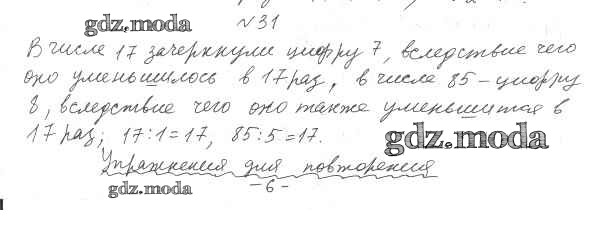 gdz.moda
№31
В числе 17 зачеркнули цифру 7, вследствие чего
оно уменьшилось в 17 раз, в числе 85 – цифру
8, вследствие чего оно также уменьшится в
17 раз; 17:1=17, 85:5=17.
gdz.moda
Упражнения для повторения
gdz.moda
–6–